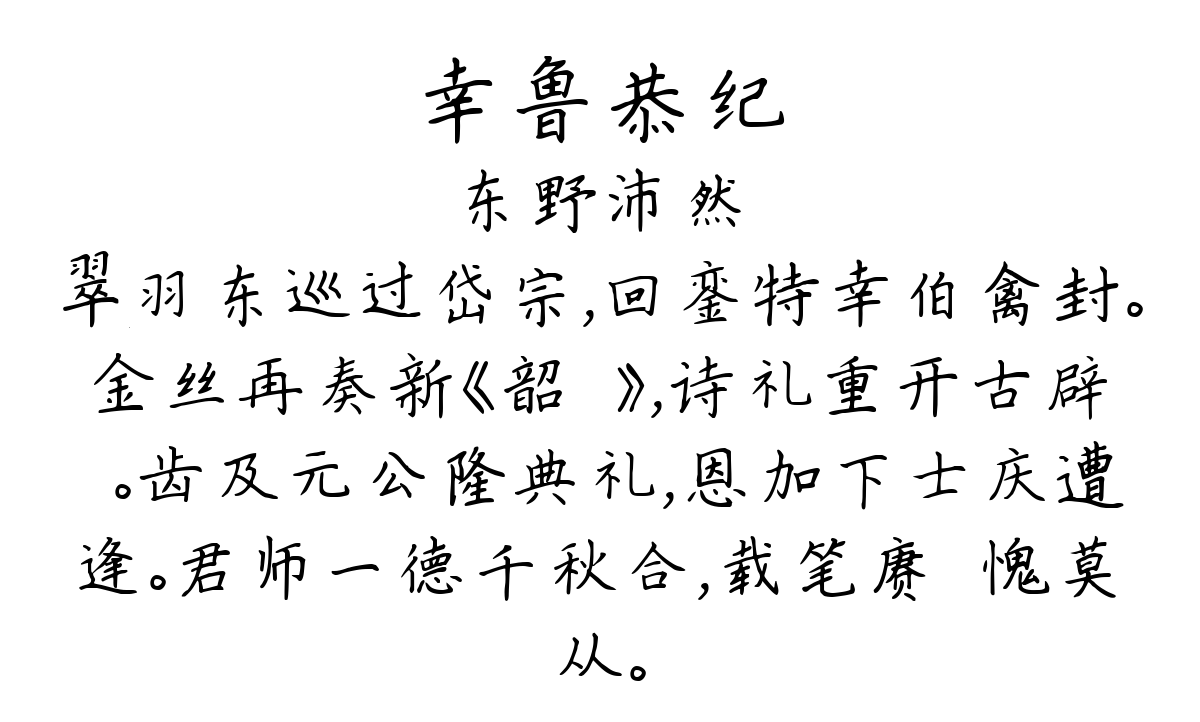 幸鲁恭纪
东野沛然
翠羽东巡过岱宗,回銮特幸伯禽封。
金丝再奏新《韶 》,诗礼重开古辟
。齿及元公隆典礼,恩加下士庆遭
逢。君师一德千秋合,载笔赓 愧莫
从。